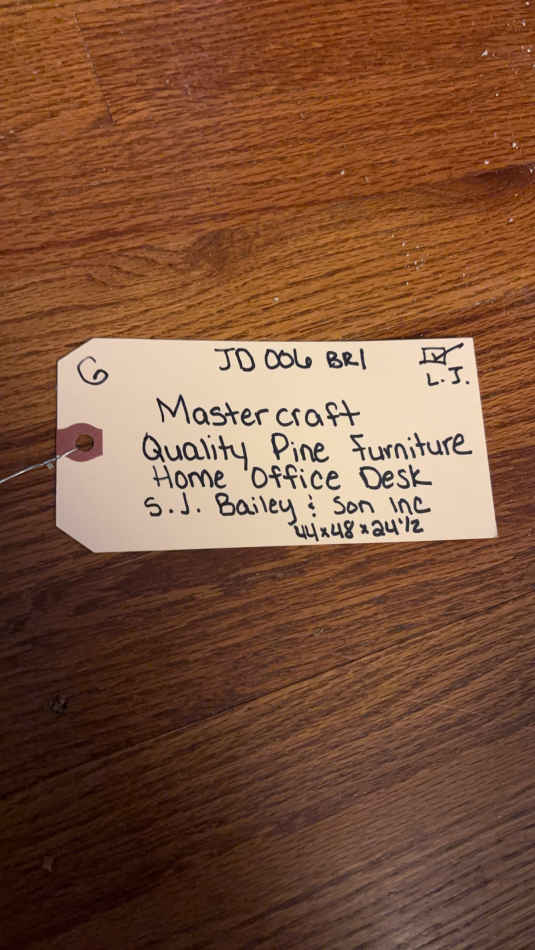 G
JD 006 BR1
L.J.
Mastercraft
Quality Pine Furniture
Home Office Desk
S.J. Bailey & Son Inc
44x48x24 1/2